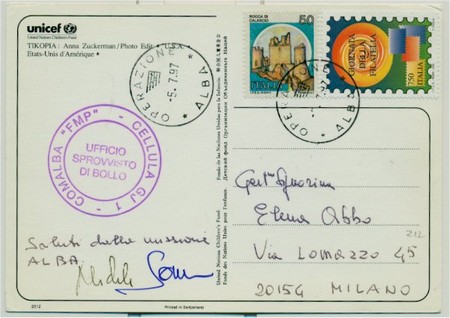 unicef
United Nations Children's Fund
TIKOPIA: Anna Zuckerman/Photo Edit • USA •
Etats-Unis d'Amérique •
OPERAZIONE ALBA
-5.7.97
ROCCA DI CALASCIO
50
ITALIA
GIORNATA DELLA FILATELIA
750
ITALIA
OPERAZIONE ALBA
COMALBA "FMP" - CELLULA GJ 1 -
UFFICIO
SPROVVISTO
DI BOLLO
United Nations Children's Fund
Fonds des Nations Unies pour l'enfance
Детский фонд Организации Объединенных Наций
Gent.ma Signorina
Elena Abbo
Via Lomazzo 45
20154 MILANO
212
Saluti dalla missione
ALBA
Michele
Printed in Switzerland